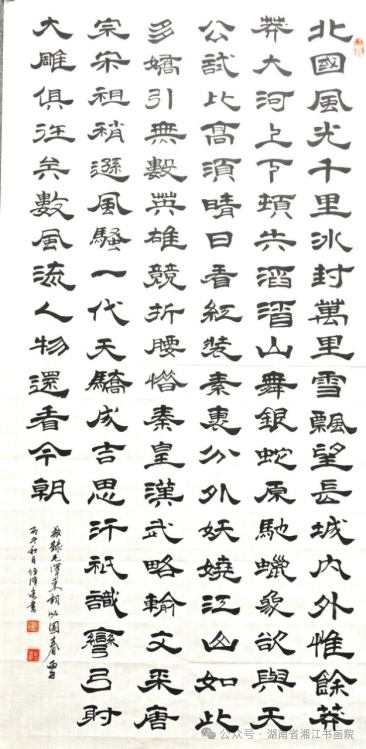 北國風光千里冰封萬里雪飄望長城內外惟餘莽
莽大河上下頓失滔滔山舞銀蛇原馳蠟象欲與天
公試比高須晴日看紅裝素裹分外妖嬈江山如此
多嬌引無數英雄競折腰惜秦皇漢武略輸文采唐
宗宋祖稍遜風騷一代天驕成吉思汗祇識彎弓射
大雕俱往矣數風流人物還看今朝
敬錄毛澤東詞沁園春雪
公众号 · 湖南省湘江书画院